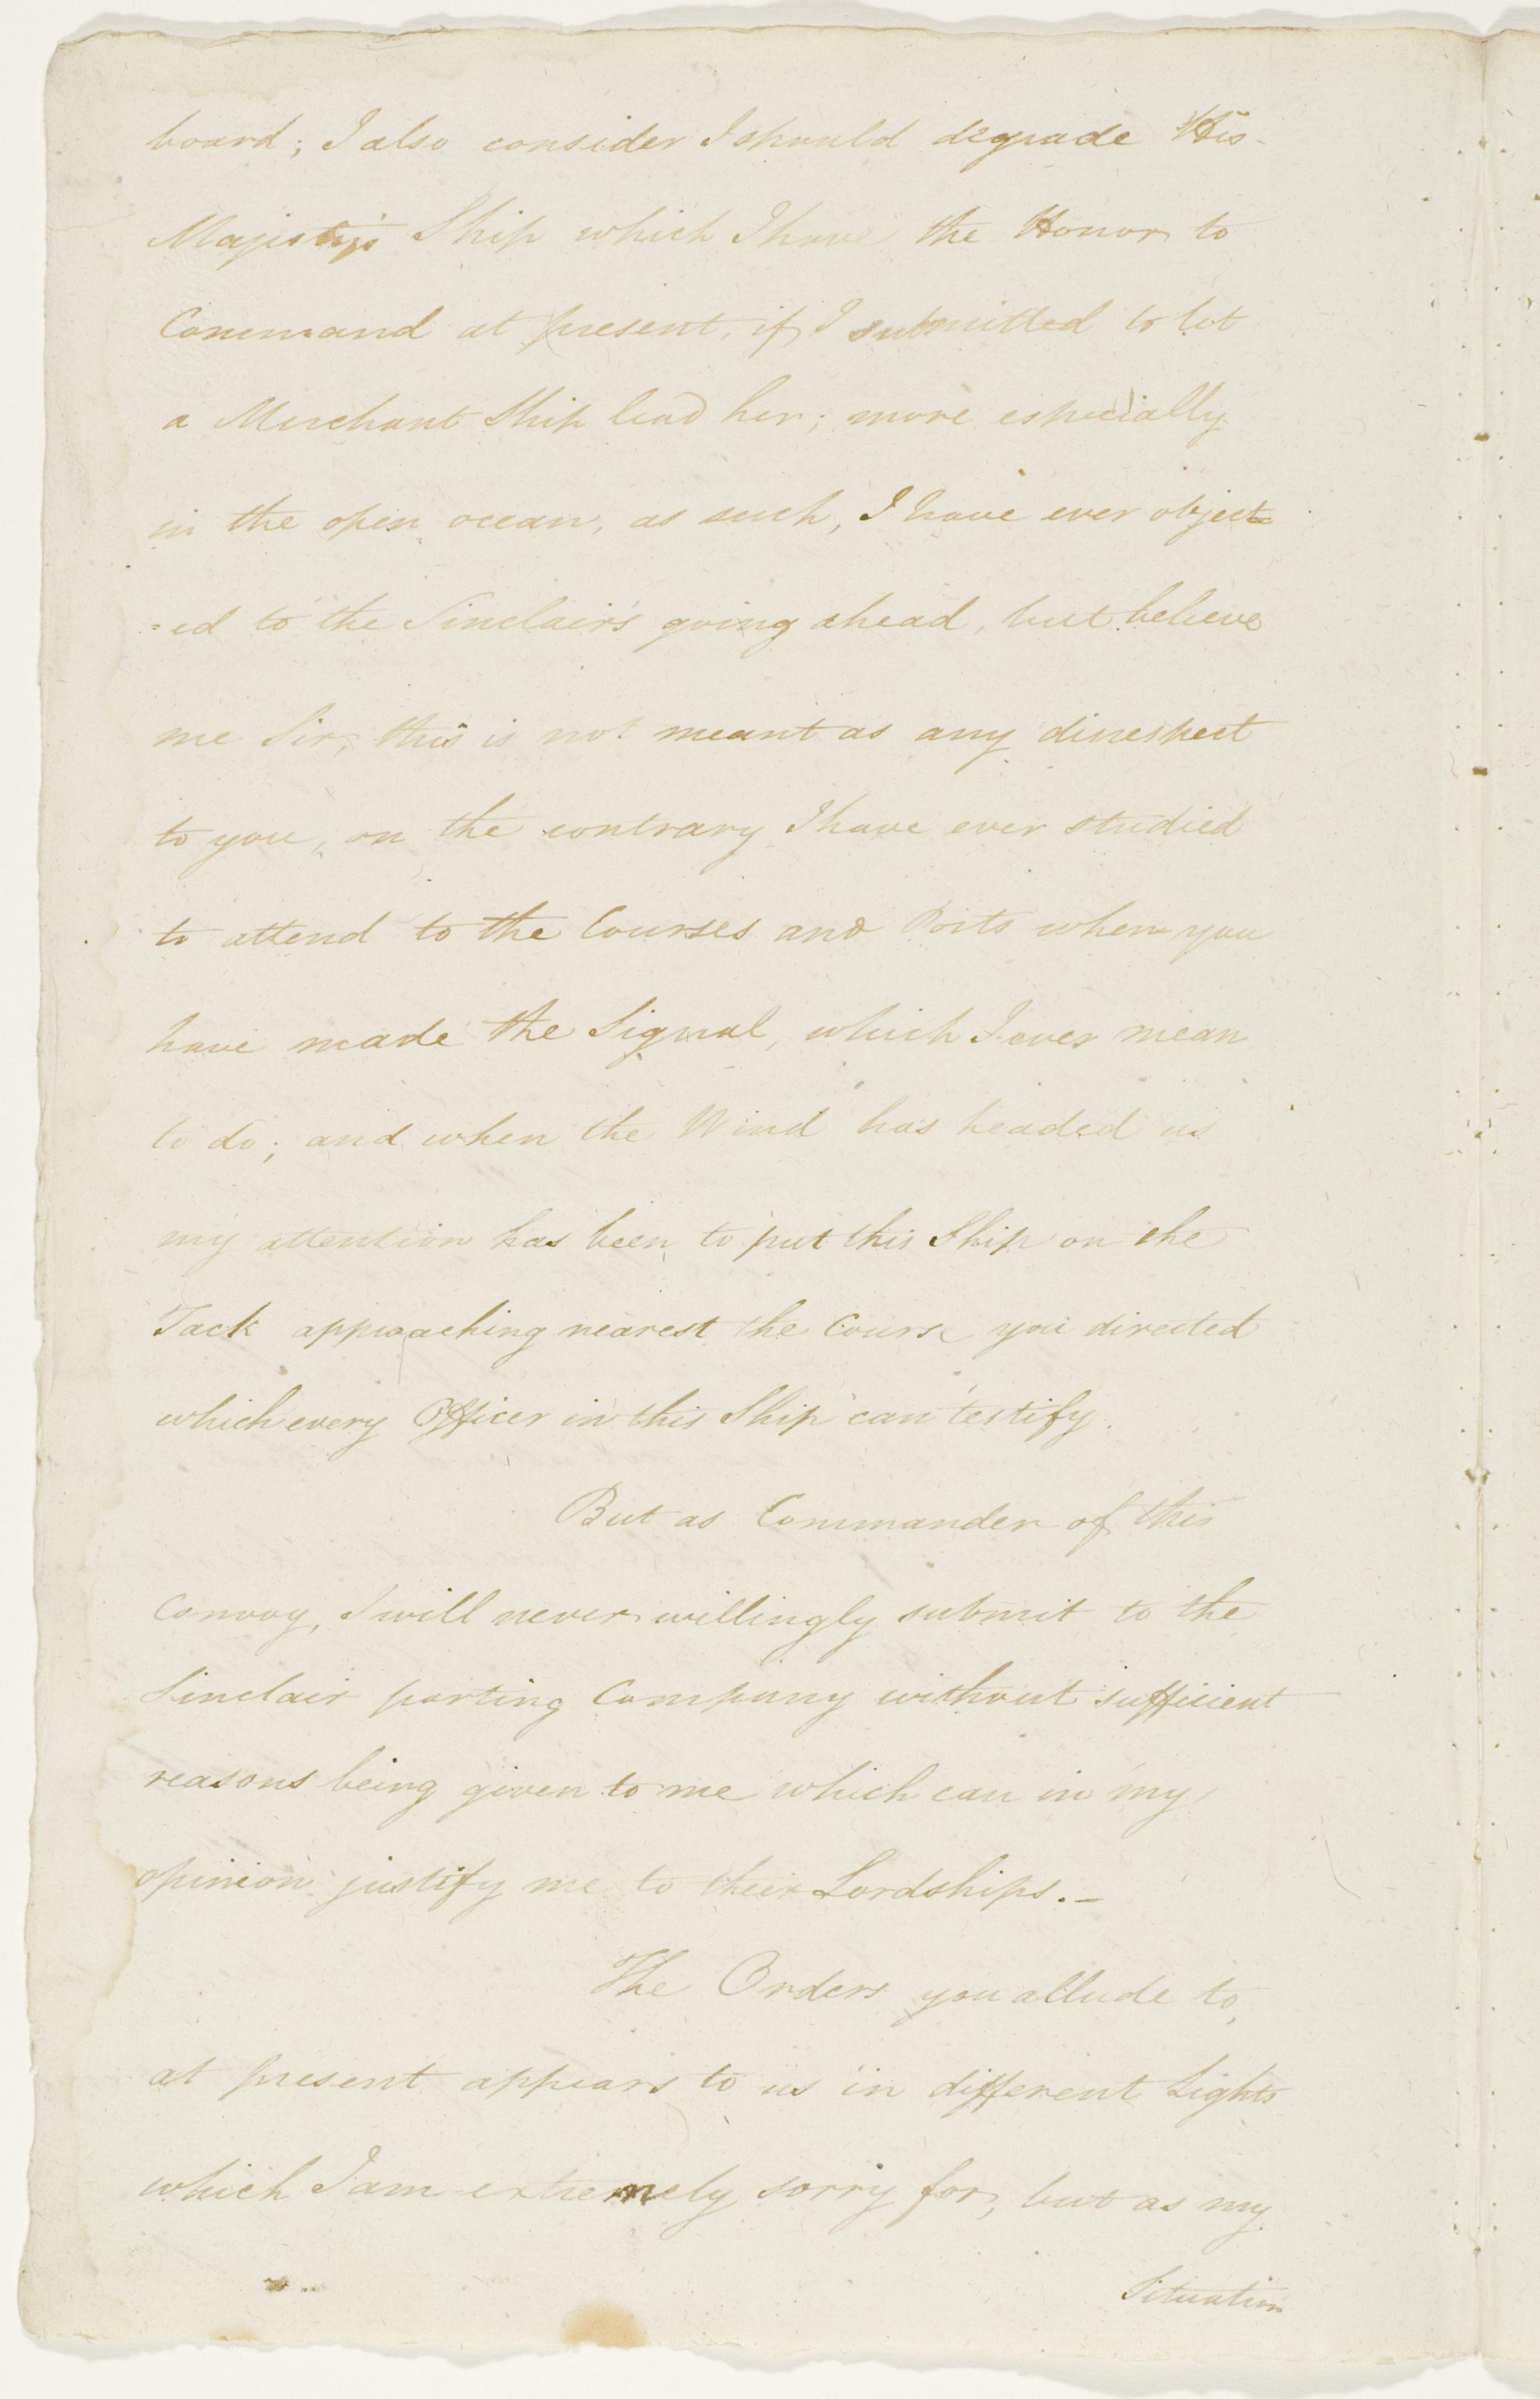 board; I also consider I should degrade His
Majesty's Ship which I have the Honor to
Command at present, if I submitted to let
a Merchant Ship lead her; more especially
in the open ocean, as such, I have ever object
=ed to the Sinclair's going ahead, but believe
me Sir, this is not meant as any disrespect
to you, on the contrary I have ever studied
to attend to the Courses and Ports when you
have made the Signal, which I ever mean
to do; and when the Wind has headed us
my attention has been to put this Ship on the
Tack approaching nearest the Course you directed
which every Officer in this Ship can testify.
But as Commander of this
Convoy, I will never willingly submit to the
Sinclair parting Company without sufficient
reasons being given to me which can in my
opinion justify me to their Lordships. _
The Orders you allude to,
at present appears to us in different Lights
which I am extremely sorry for, but as my
Situation